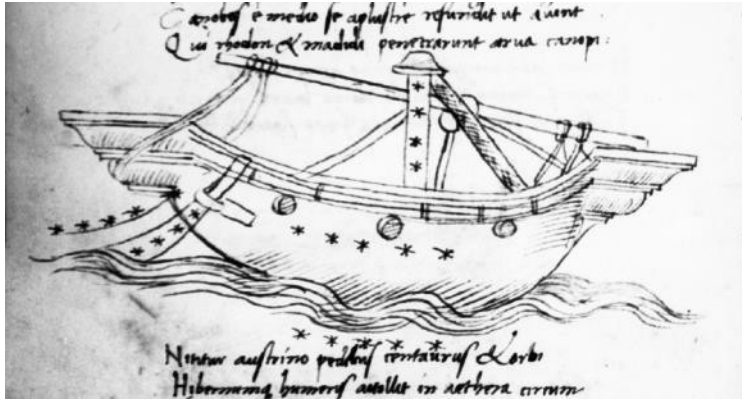 Canobos e medio se aplustre refundit ut aiunt
Qui rhodon & madidi penetrarunt arva canopi:
Nititur austrino pedibus centaurus & orbi
Hibernumq humeris attollit in aethera circum